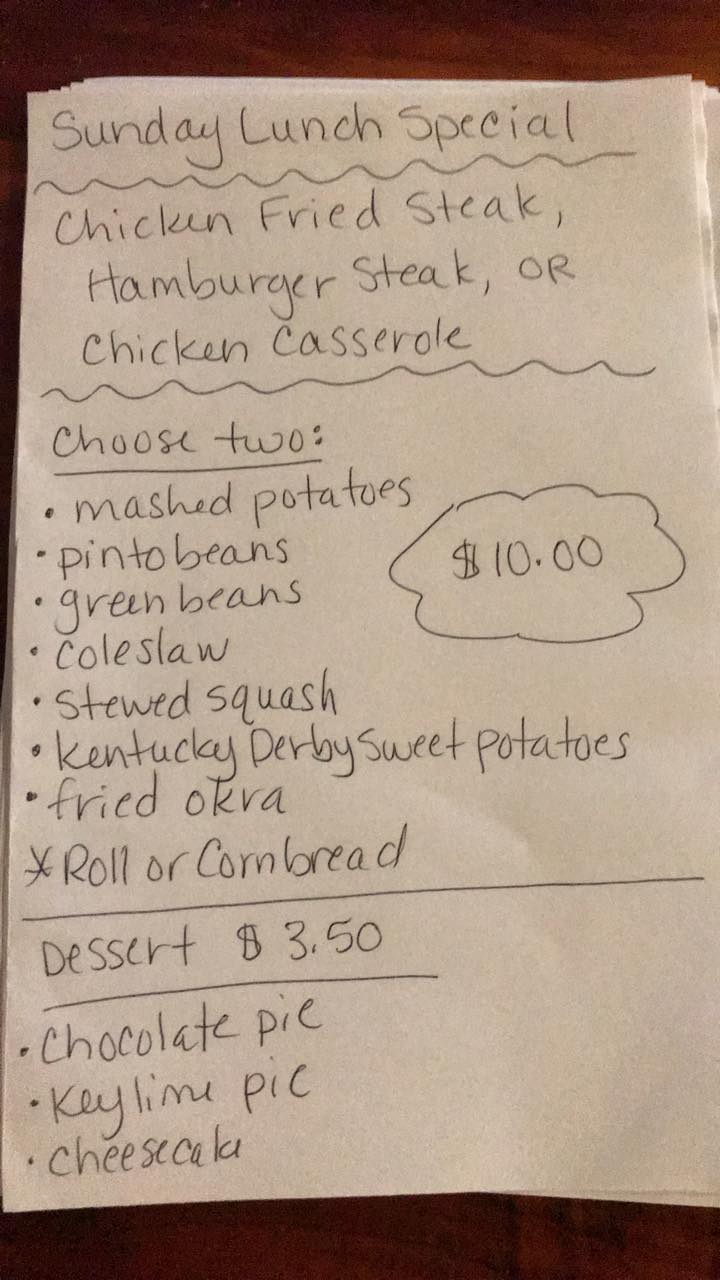 Sunday Lunch Special
Chicken Fried Steak,
Hamburger Steak, OR
Chicken Casserole
Choose two:
• mashed potatoes
• pinto beans
$10.00
• green beans
• coleslaw
• stewed squash
• Kentucky Derby Sweet potatoes
• fried okra
* Roll or Cornbread
Dessert $3.50
• Chocolate pie
• Key lime pie
• Cheesecake